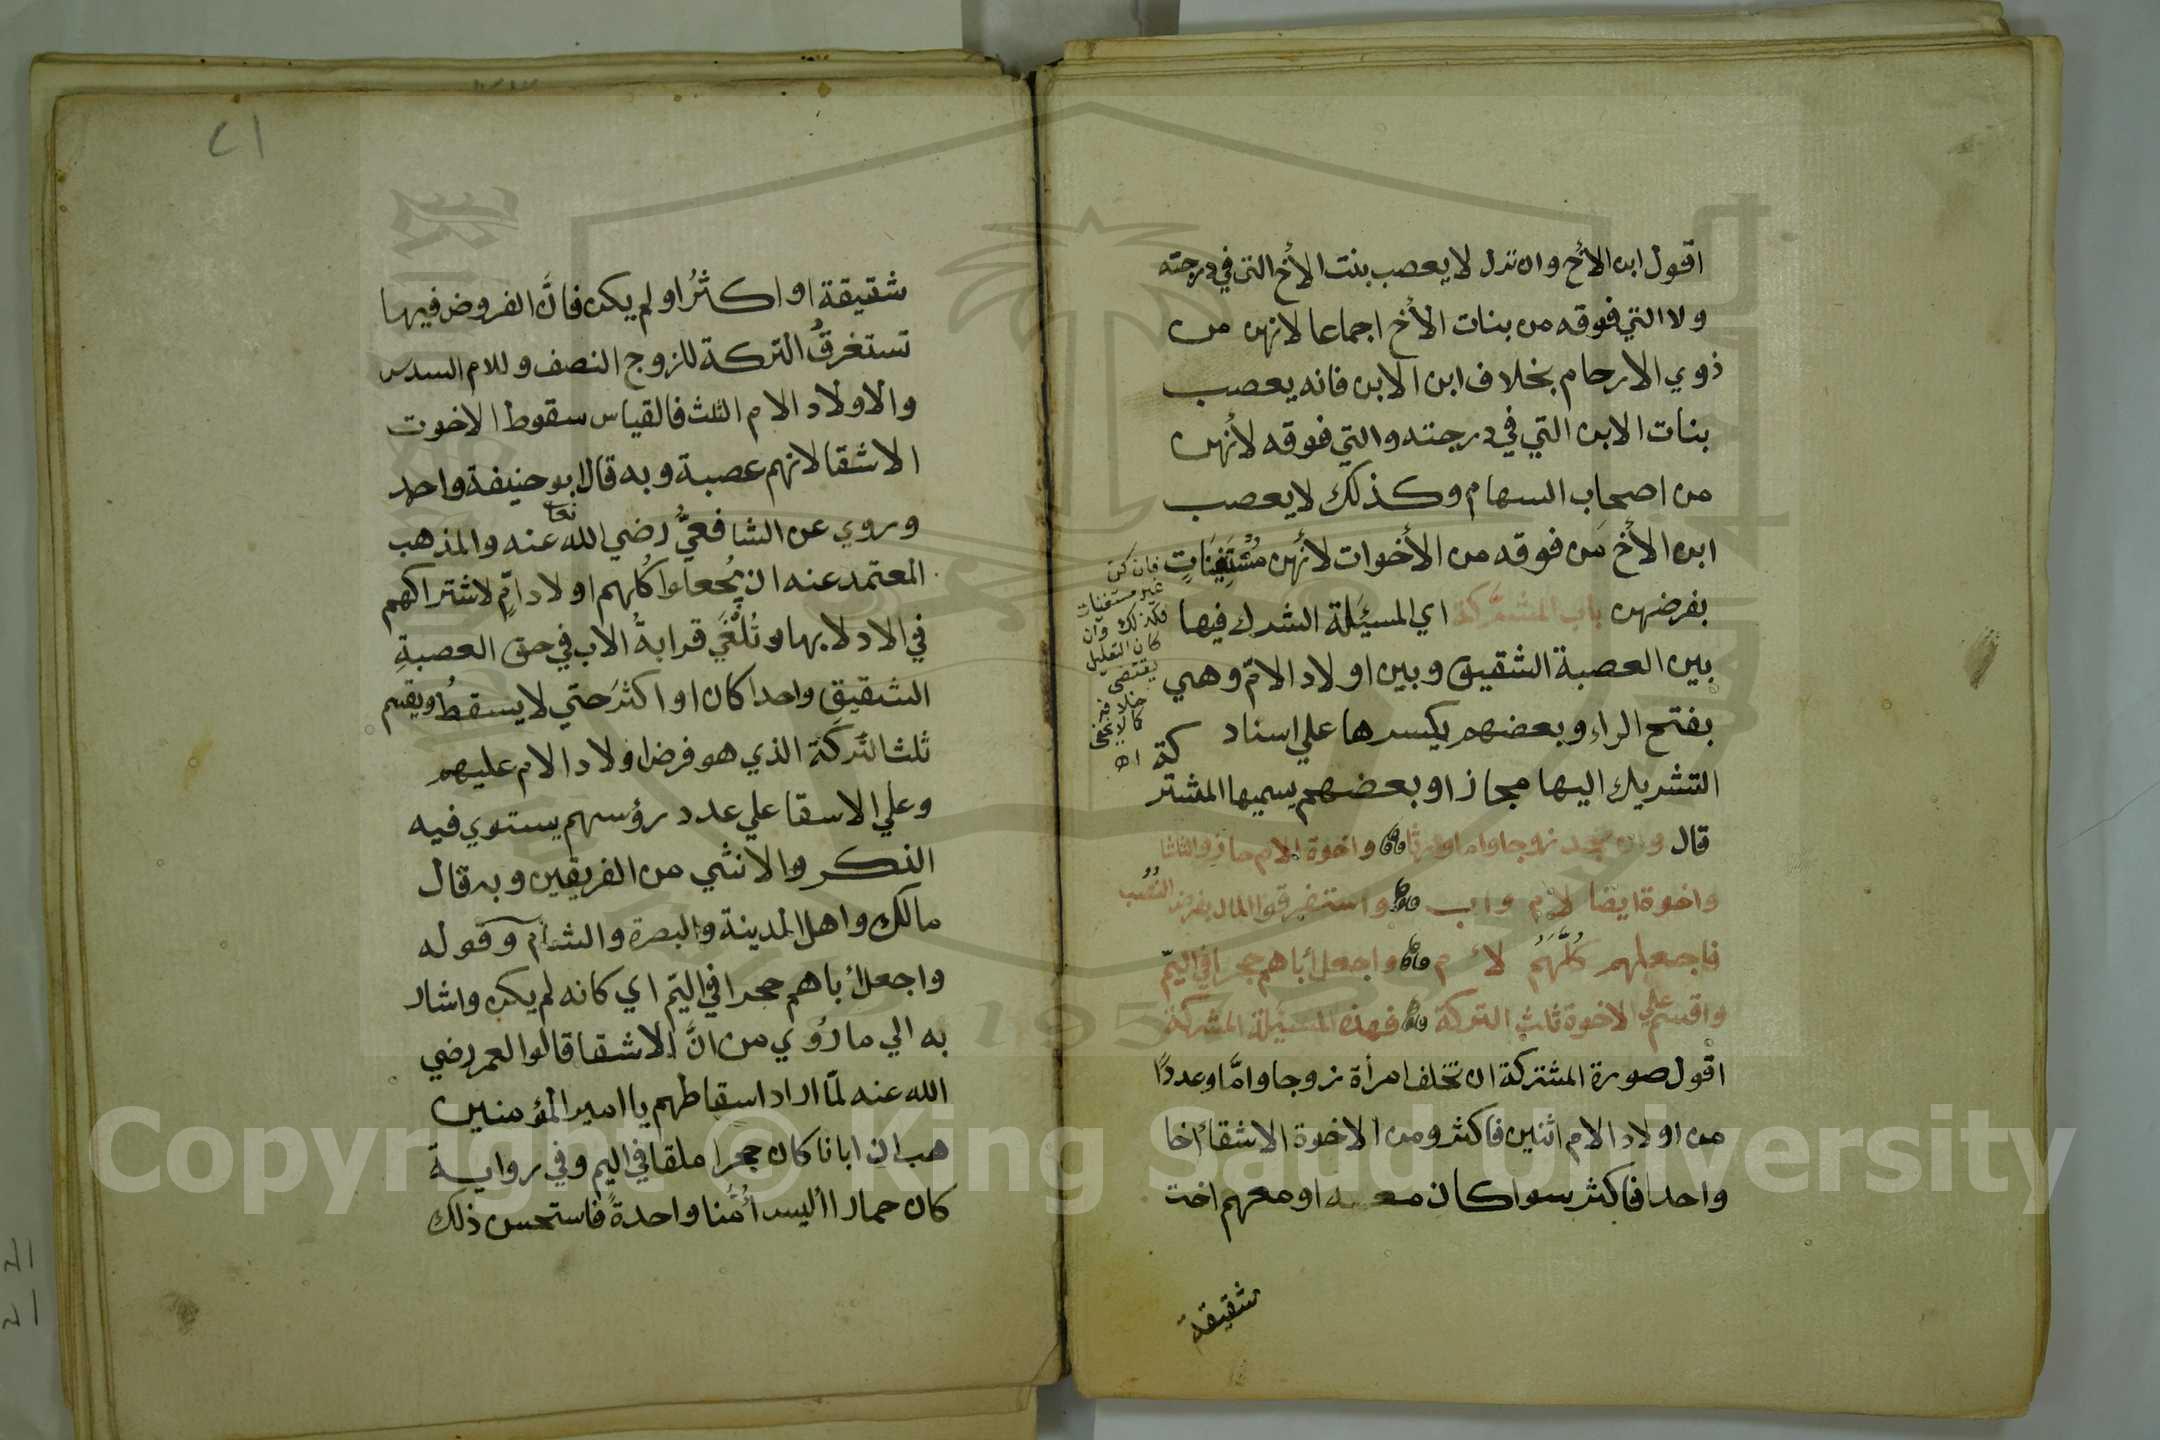 اقول ابن الأخ وان نزل لا يعصب بنت الأخ التي في درجته
ولا التي فوقه من بنات الأخ اجماعا لانهن من
ذوي الارحام بخلاف ابن الابن فانه يعصب
بنات الابن التي في درجته والتي فوقه لأنهن
من اصحاب السهام وكذلك لا يعصب
ابن الأخ من فوقه من الأخوات لأنهن مُسْتَغِنَياتٍ
بفرضهن باب المشتركة اي المسئلة الشرك فيها
بين العصبة الشقيق وبين اولاد الامّ وهي
بفتح الراء وبعضهم يكسرها علي اسناد
التشريك اليها مجازا وبعضهم يسميها المشتركة
قال وان تجد زوجا واما ورثا واخوة للام حازوا الثلثا
واخوة ايضا لام واب واستغرقوا المال بفرض النُّصُب
فاجعلهم كُلَّهَمُ لأم واجعل أباهم حجرا في اليمّ
واقسم علي الاخوة ثلث التركة فهذه المسئلة المشركة
اقول صورة المشتركة ان تخلف امرأة زوجا وامَّا وعددًا
من اولاد الام اثنين فاكثر ومن الاخوة الاشقاء اخا
واحدا فاكثر سوا كان معه او معهم اخت
شقيقة
فان كن
غير مستغنيات
فكذلك وان
كان التعليل
يقتضي
خلافه
كما لا يخفى
اهـ
٢١
شقيقة او اكثرُ او لم يكن فانَّ الفروض فيها
تستغرقُ التركة للزوج النصف وللام السدس
والاولاد الام الثلث فالقياس سقوط الاخوت
الاشقا لانهم عصبة وبه قال ابو حنيفة واحمد
وروي عن الشافعيّ رضي الله تعا عنه والمذهب
المعتمد عنه ان يُجعلوا كُلهم اولاد امٍّ لاشتراكهم
في الادلا بها وتُلْغَي قرابةُ الاب في حق العصبةِ
الشقيقِ واحدا كان او اكثرَ حتي لا يسقطُ ويقسم
ثلث التركَة الذي هو فرض اولاد الام عليهم
وعلي الاسقا علي عدد رؤسهم يستوي فيه
الذكر والانثي من الفريقين وبه قال
مالك واهل المدينة والبصرة والشام وقوله
واجعل أباهم حجرا في اليّم اي كانه لم يكن واشار
به الي ما رُوي من انَّ الاشقا قالوا لعمر رضي
الله عنه لمّا اراد اسقاطهم يا امير المؤمنين
هب ان ابانا كان حجرا ملقا في اليم وفي رواية
كان حمارا أليسد أُمُّنا واحدةً فاستحسن ذلك
Copyright © King Saud University
1957